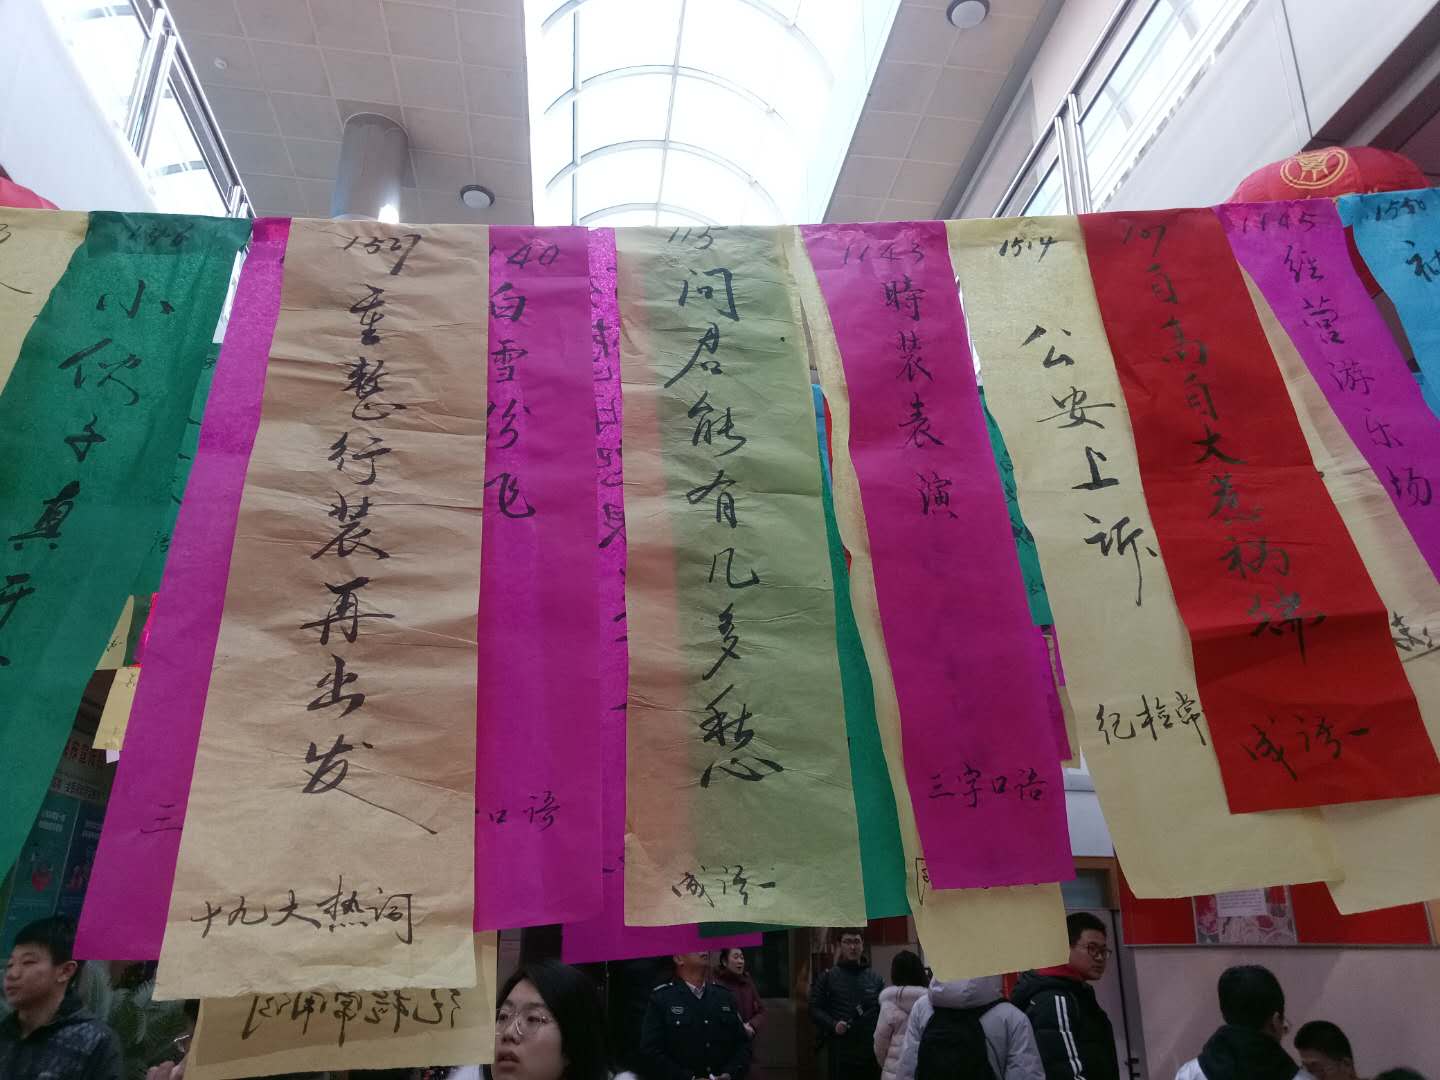 小伙子真牙
1527
重整行装再出发
十九大热词
140
白雪纷飞
口语
115
问君能有几多愁
成语一
1143
時装表演
三字口语
1514
公安上诉
纪检常
107
自高自大惹祸端
成语一
1145
经营游乐场
1550
三
纪检常用词